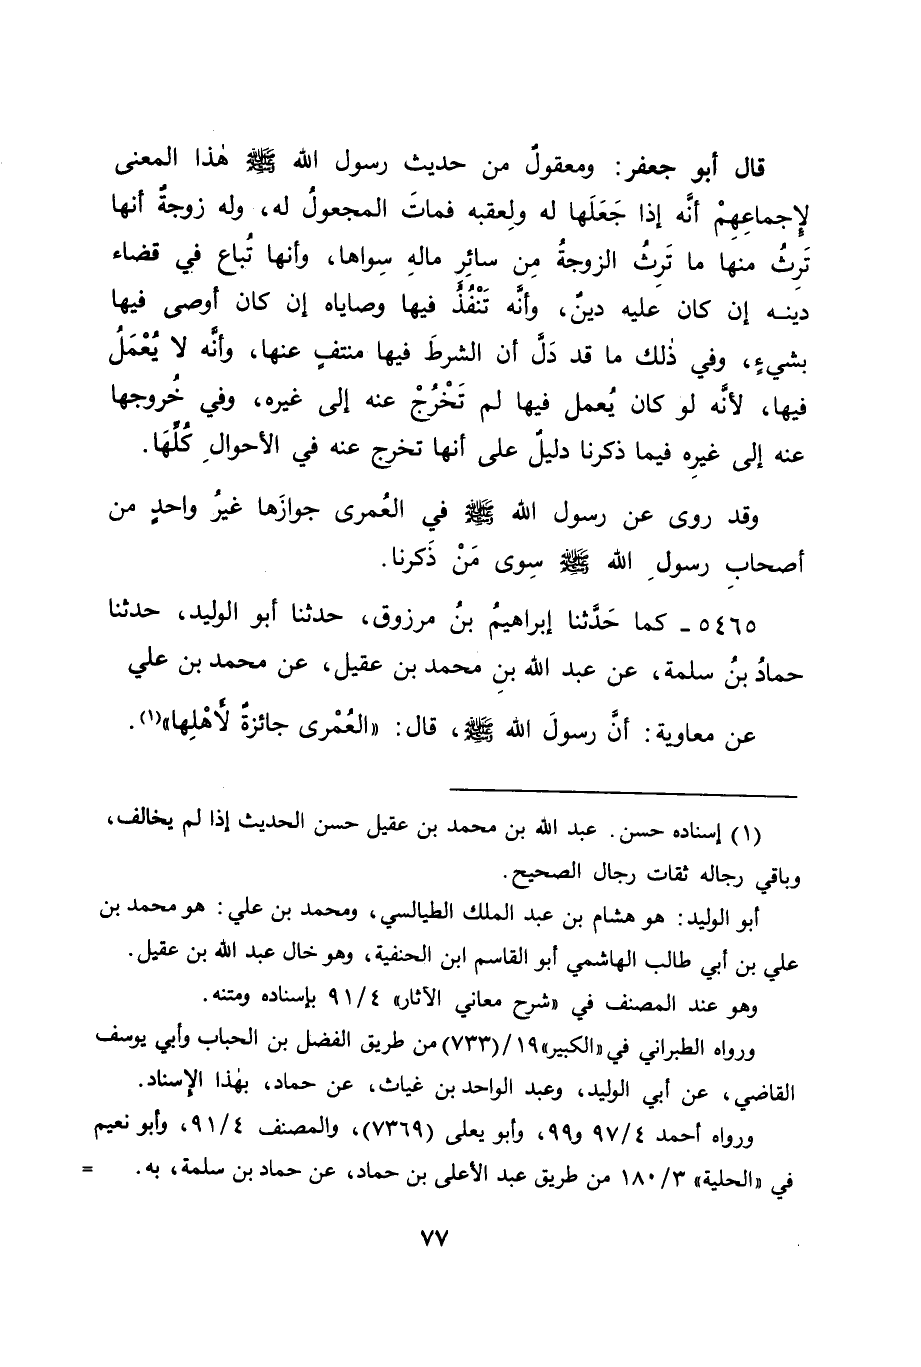 قال أبو جعفر: ومعقولٌ من حديث رسول الله ﷺ هٰذا المعنى
لإجماعِهِمْ أنَّه إذا جَعَلَها له ولِعقبه فماتَ المجعولُ له، وله زوجةٌ أنها
تَرِثُ منها ما تَرِثُ الزوجةُ مِن سائرِ مالهِ سِواها، وأنها تُباع في قضاء
دينـه إن كان عليه دينٌ، وأنَّه تَنْفُذُ فيها وصاياه إن كان أوصى فيها
بشيءٍ، وفي ذٰلك ما قد دَلَّ أن الشرطَ فيها منتفٍ عنها، وأنَّه لا يُعْمَلُ
فيها، لأنَّه لو كان يُعمل فيها لم تَخْرُجْ عنه إلى غيره، وفي خُروجها
عنه إلى غيرِه فيما ذكرنا دليلٌ على أنها تخرج عنه في الأحوالِ كُلِّهَا.
وقد روى عن رسول الله ﷺ في العُمرى جوازَها غيرُ واحدٍ من
أصحابِ رسولِ الله ﷺ سِوى مَنْ ذَكرنا.
٥٤٦٥ ـ كما حَدَّثنا إبراهيمُ بنُ مرزوق، حدثنا أبو الوليد، حدثنا
حمادُ بنُ سلمة، عن عبد الله بنِ محمد بن عقيل، عن محمد بن علي
عن معاوية: أنَّ رسولَ الله ﷺ، قال: «العُمْرى جائزةٌ لأَهْلِها»(١).
(١) إسناده حسن. عبد الله بن محمد بن عقيل حسن الحديث إذا لم يخالف،
وباقي رجاله ثقات رجال الصحيح.
أبو الوليد: هو هشام بن عبد الملك الطيالسي، ومحمد بن علي: هو محمد بن
علي بن أبي طالب الهاشمي أبو القاسم ابن الحنفية، وهو خال عبد الله بن عقيل.
وهو عند المصنف في «شرح معاني الآثار» ٩١/٤ بإسناده ومتنه.
ورواه الطبراني في «الكبير» ١٩/(٧٣٣) من طريق الفضل بن الحباب وأبي يوسف
القاضي، عن أبي الوليد، وعبد الواحد بن غياث، عن حماد، بهٰذا الإسناد.
ورواه أحمد ٩٧/٤ و٩٩، وأبو يعلى (٧٣٦٩)، والمصنف ٩١/٤، وأبو نعيم
في «الحلية» ١٨٠/٣ من طريق عبد الأعلى بن حماد، عن حماد بن سلمة، به. =
٧٧